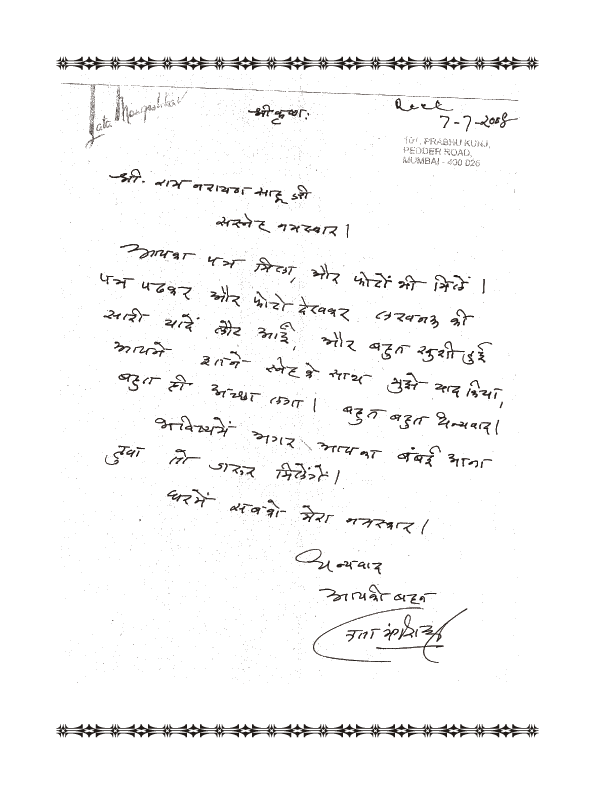 Lata Mangeshkar
श्रीकृष्णः
Recd
7-7-2008
101, PRABHU KUNJ,
PEDDER ROAD,
MUMBAI - 400 026
श्री. राम नारायण साहू जी
सस्नेह नमस्कार।
आपका पत्र मिला, और फोटो भी मिलें।
पत्र पढकर और फोटो देखकर लखनऊ की
सारी यादें लौट आई, और बहुत खुशी हुई
आपने इतने स्नेह के साथ मुझे याद किया,
बहुत ही अच्छा लगा। बहुत बहुत धन्यवाद।
भविष्यमें अगर आपका बंबई आना
हुवा तो जरुर मिलेंगे।
घरमें सबको मेरा नमस्कार।
धन्यवाद
आपकी बहन
लता मंगेशकर